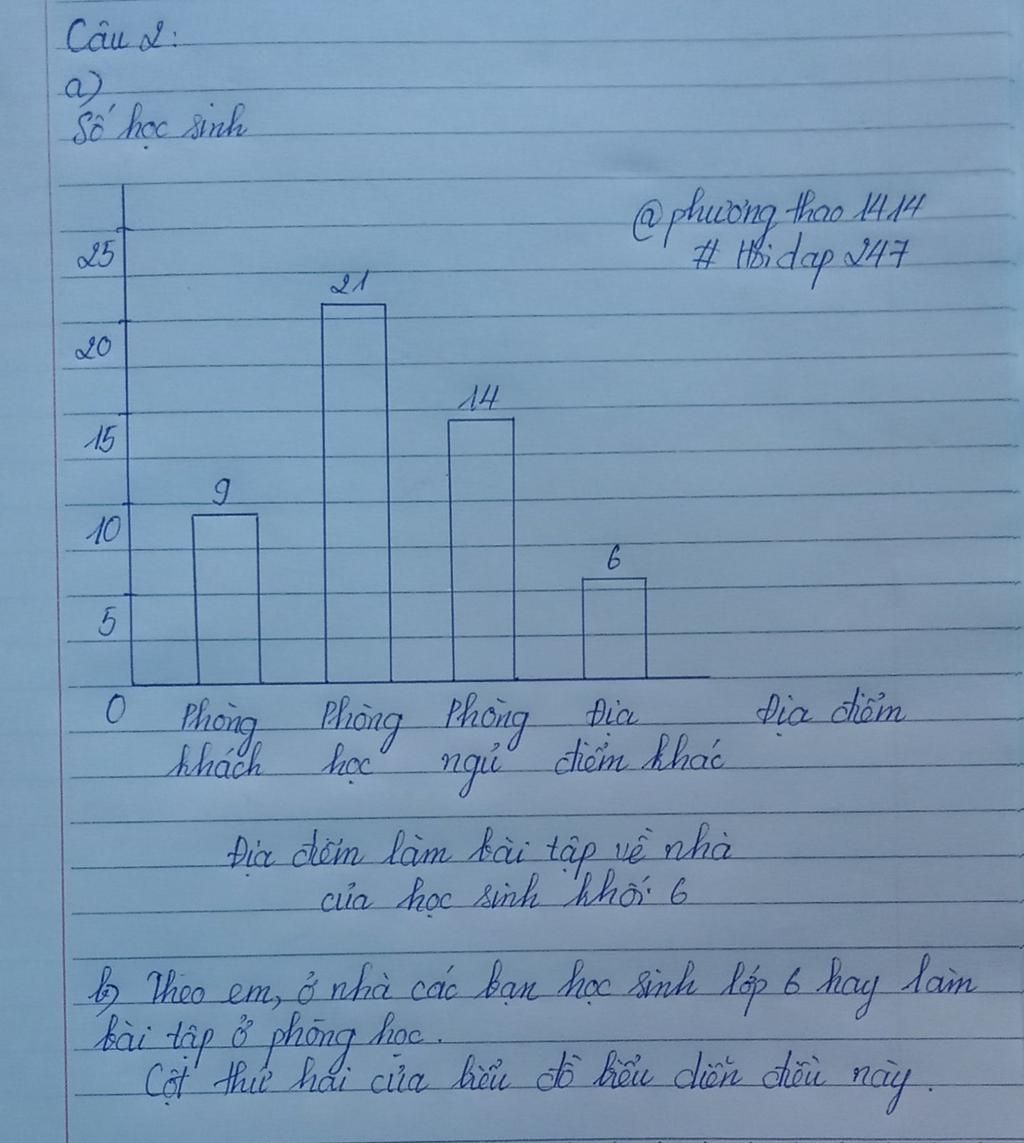 Câu 2:
a)
Số học sinh
@phương thao 1414
# Hoidap 247
25
21
20
14
15
9
10
6
5
0
Phòng Phòng Phòng Địa Địa điểm
khách học ngủ điểm khác
Địa điểm làm bài tập về nhà
của học sinh khối 6
b) Theo em, ở nhà các bạn học sinh lớp 6 hay làm
bài tập ở phòng học.
Cột thứ hai của biểu đồ biểu diễn điều này.